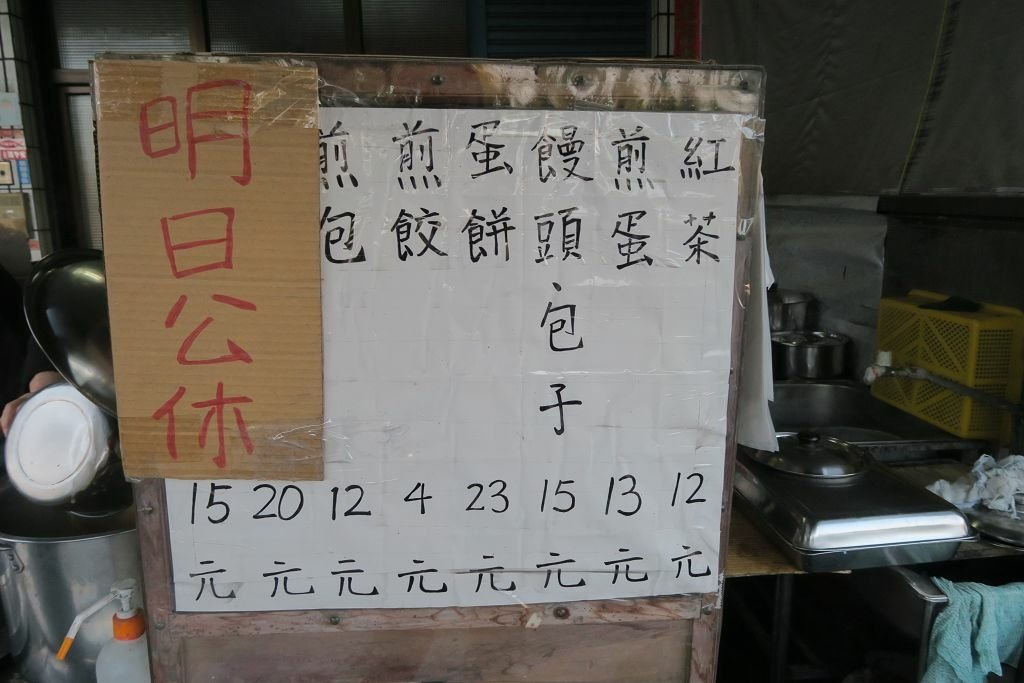 明日公休
紅茶 12元
煎蛋 13元
饅頭、包子 15元
蛋餅 23元
煎餃 4元
煎包 12元
20元
15元